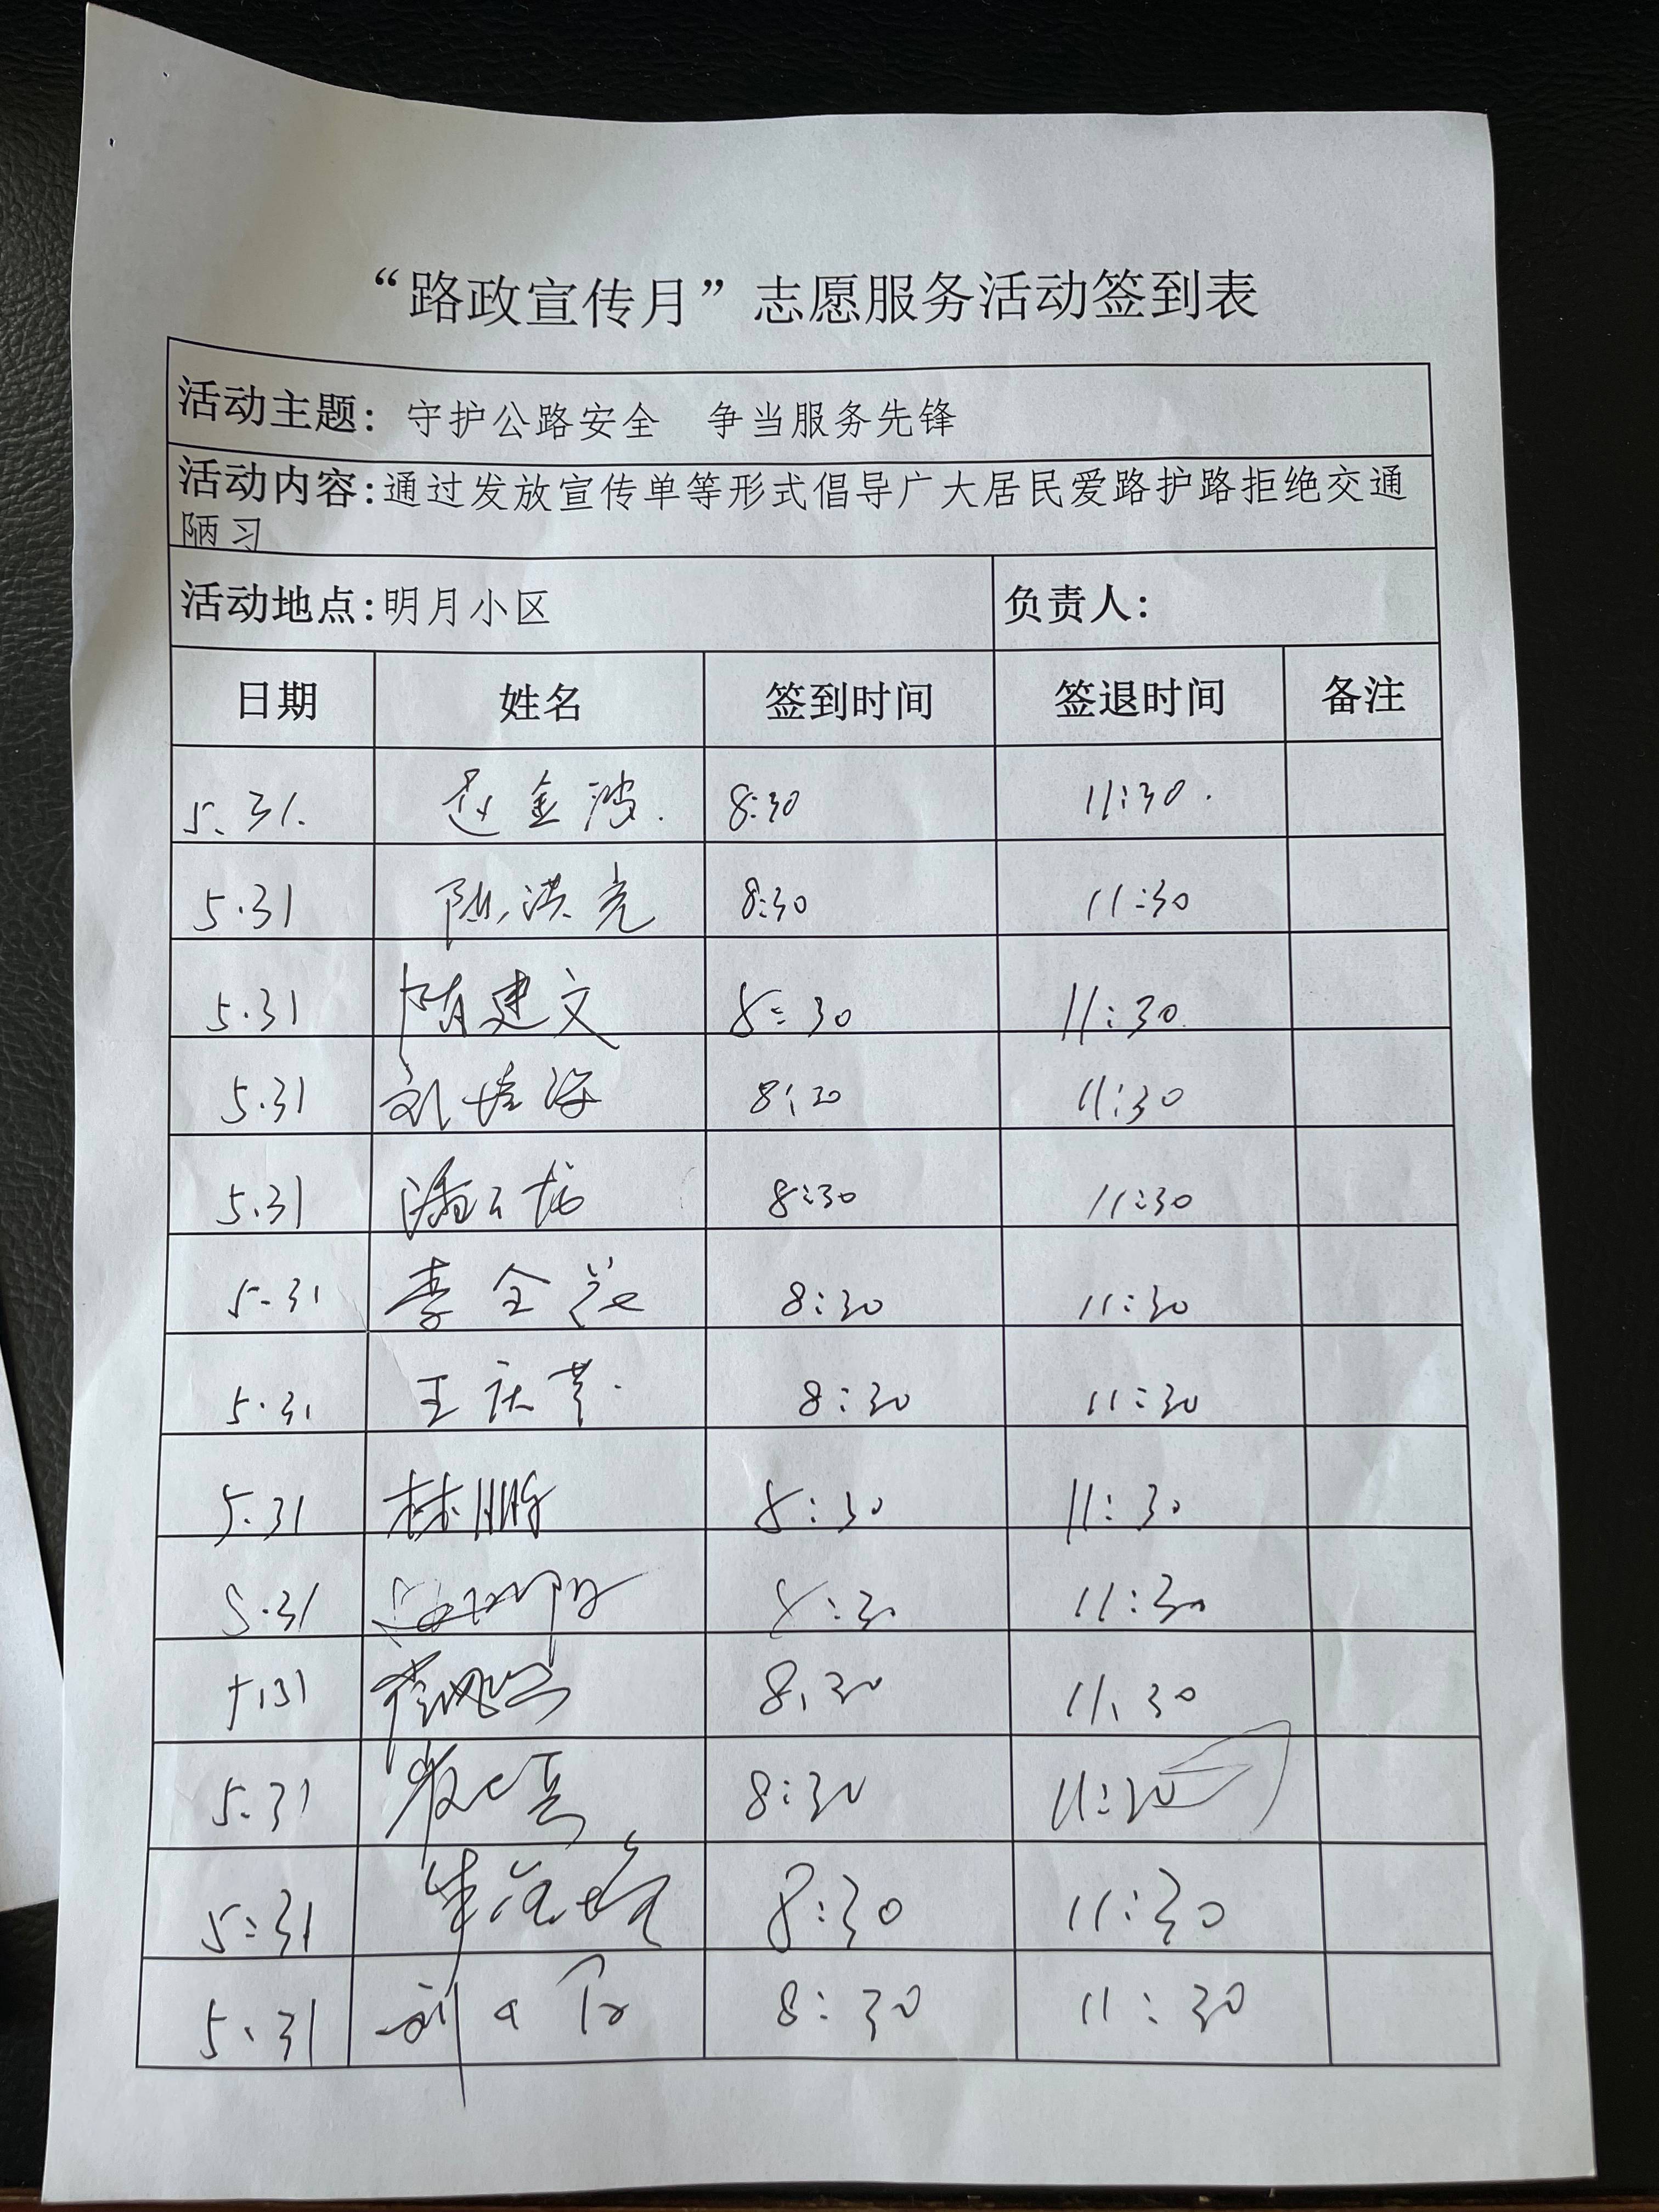 “路政宣传月”志愿服务活动签到表
活动主题: 守护公路安全 争当服务先锋
活动内容:通过发放宣传单等形式倡导广大居民爱路护路拒绝交通
陋习
活动地点:明月小区 负责人:
日期 姓名 签到时间 签退时间 备注
5.31. 赵金波. 8:30 11:30.
5.31 陈洪亮 8:30 11:30
5.31 隋建文 8:30 11:30
5.31 刘 8:30 11:30
5.31 潘云龙 8:30 11:30
5.31 李全 8:30 11:30
5.31 王庆 8:30 11:30
5.31 林鹏 8:30 11:30
5.31 8:30 11:30
5.31 8:30 11:30
5.31 8:30 11:30
5:31 8:30 11:30
5.31 刘 8:30 11:30